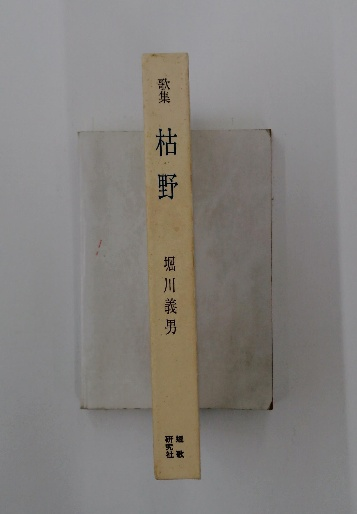 歌集
枯野
堀川義男
短歌
研究社